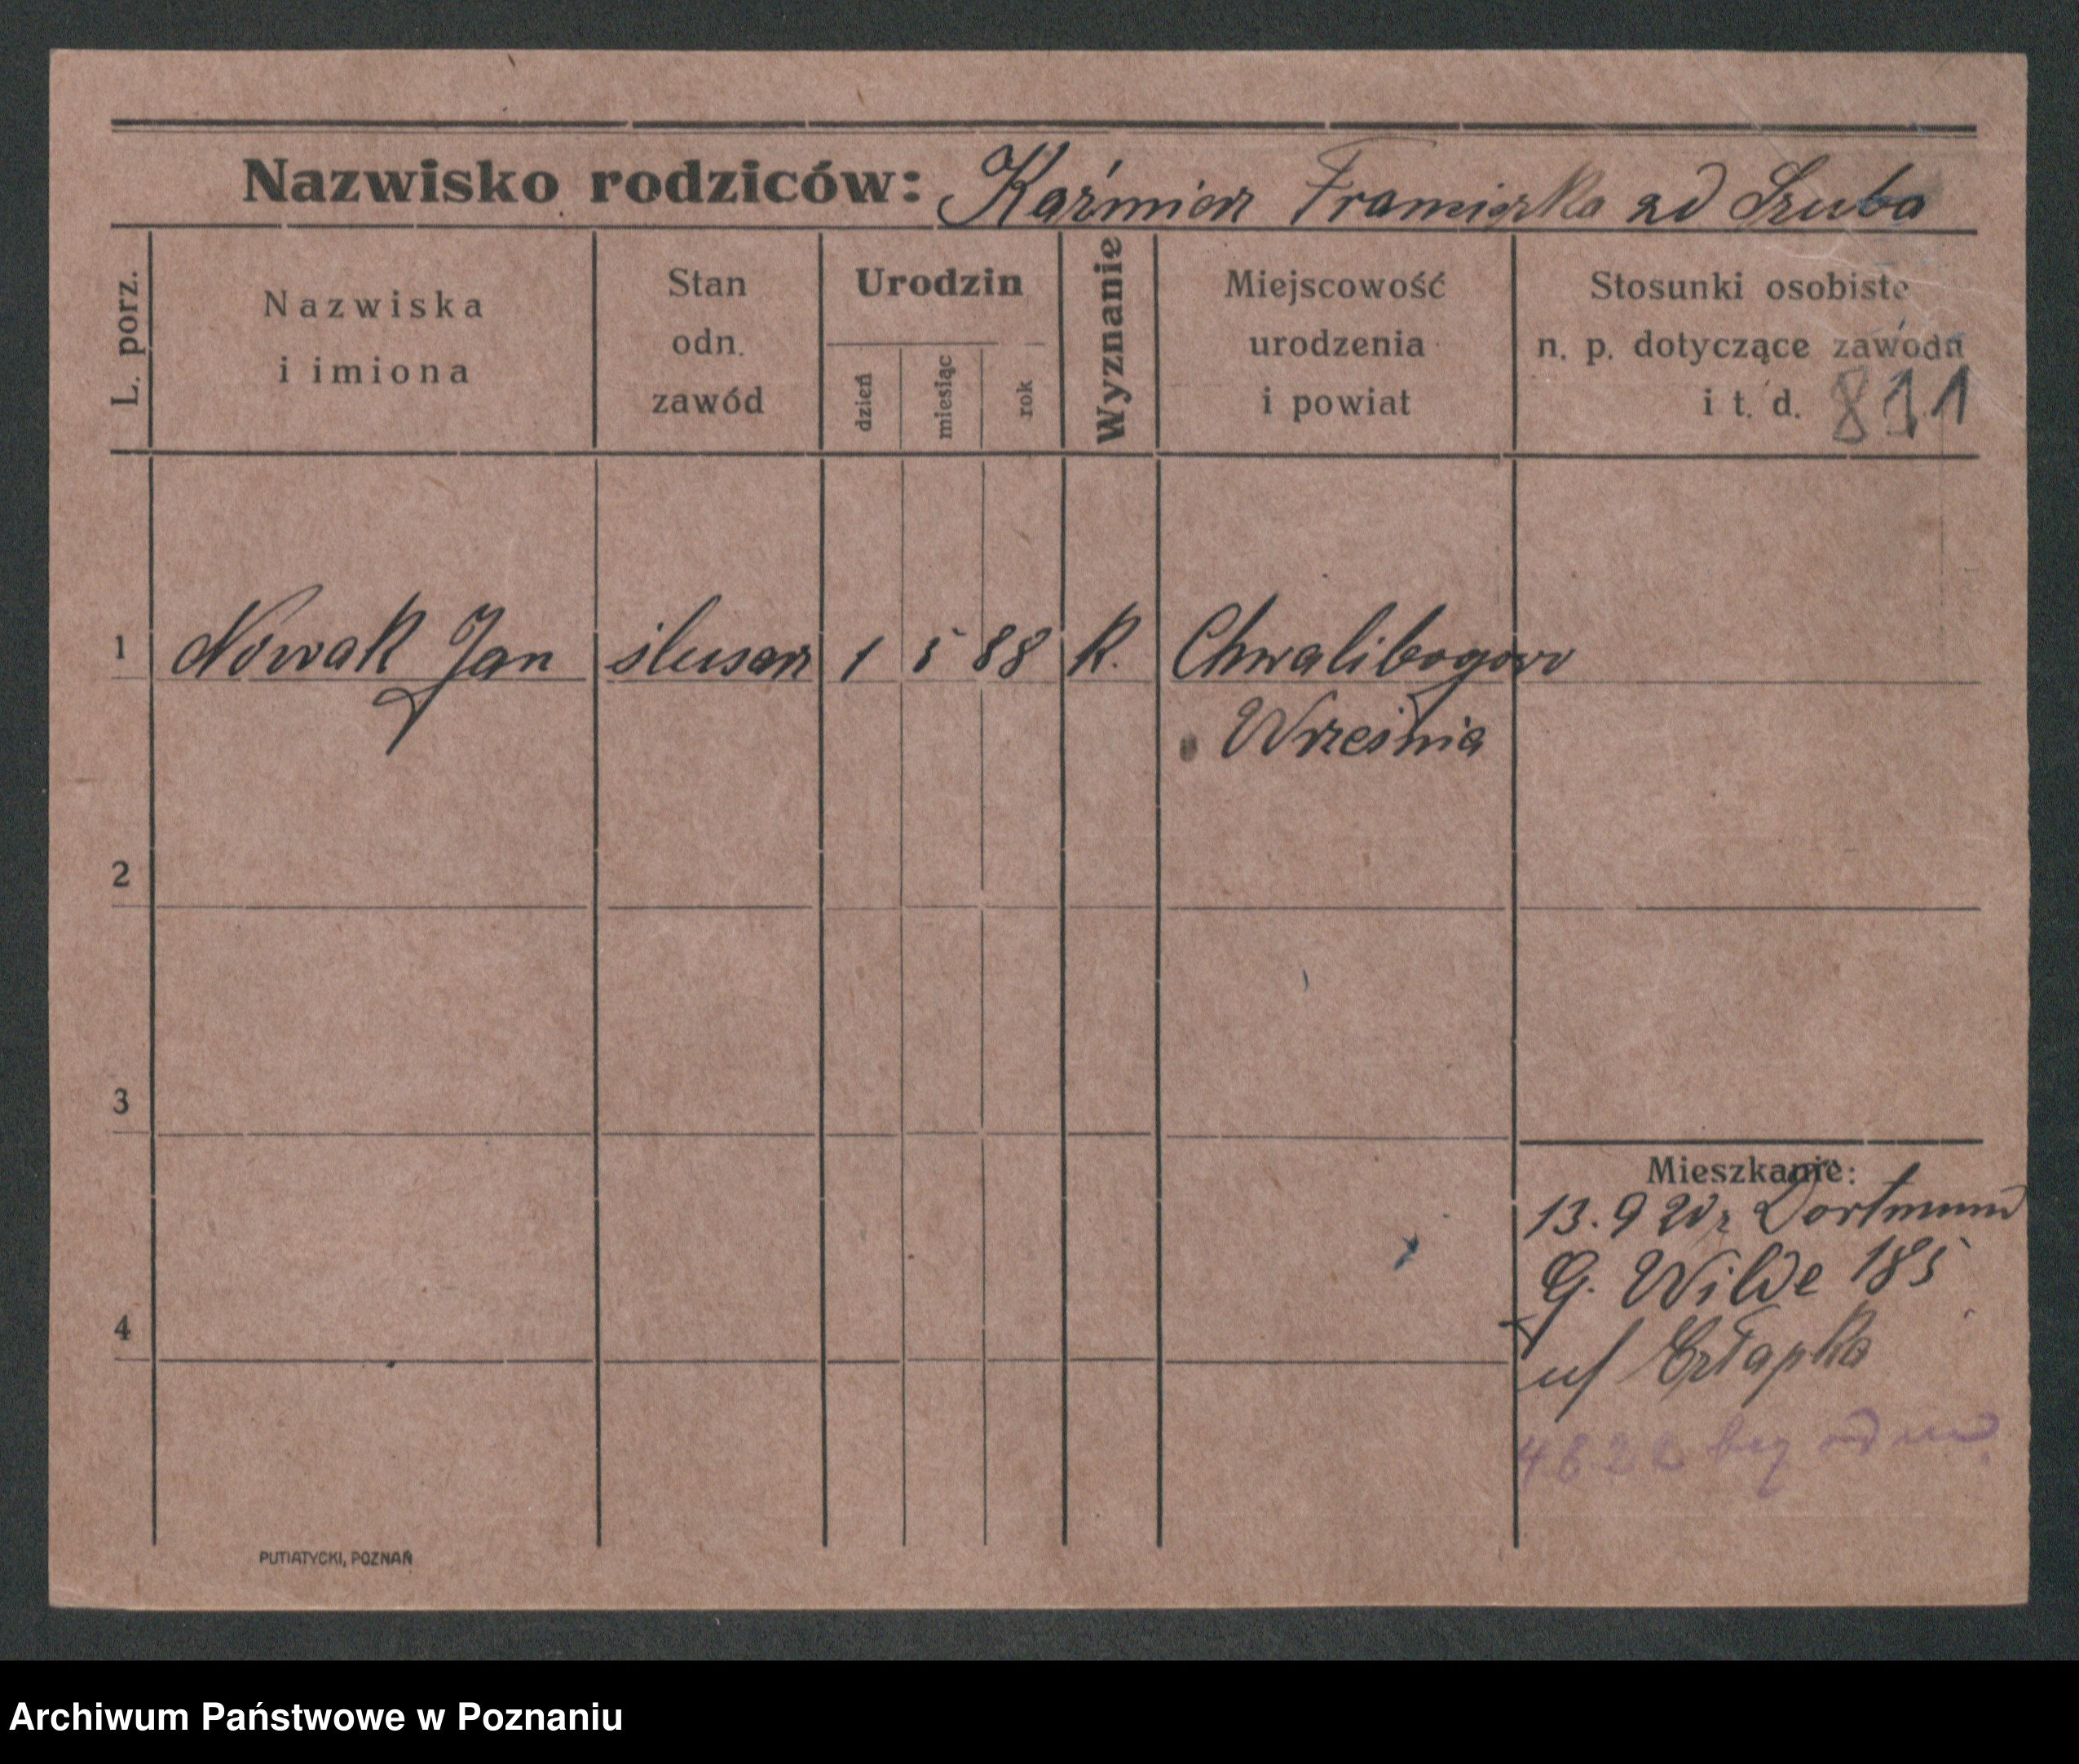 Nazwisko rodziców: Kaźmierz Franciszka zd Szuba
L. porz.
Nazwiska
i imiona
Stan
odn.
zawód
Urodzin
dzień
miesiąc
rok
Wyznanie
Miejscowość
urodzenia
i powiat
Stosunki osobiste
n. p. dotyczące zawodu
i t. d. 811
1 Nowak Jan ślusarz 1 5 88 K. Chwalibogowo
Września
2
3
4
Mieszkanie:
13.9 20 z Dortmund
G. Wilde 185
u/
4 8 22
PUTIATYCKI, POZNAŃ
Archiwum Państwowe w Poznaniu